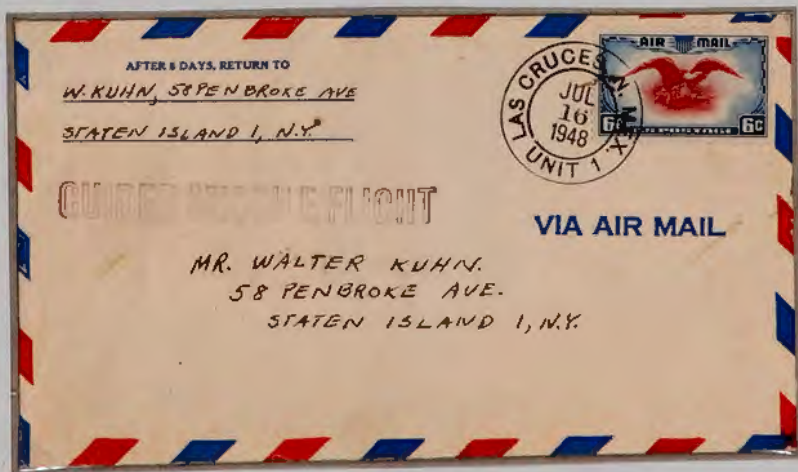 AFTER 8 DAYS, RETURN TO
W. KUHN, 58 PENBROKE AVE
STATEN ISLAND 1, N.Y.
AIR MAIL
6¢ 6¢
LAS CRUCES N. MEX.
JUL
16
1948
UNIT 1
GUIDED MISSILE FLIGHT
VIA AIR MAIL
MR. WALTER KUHN.
58 PENBROKE AVE.
STATEN ISLAND 1, N.Y.